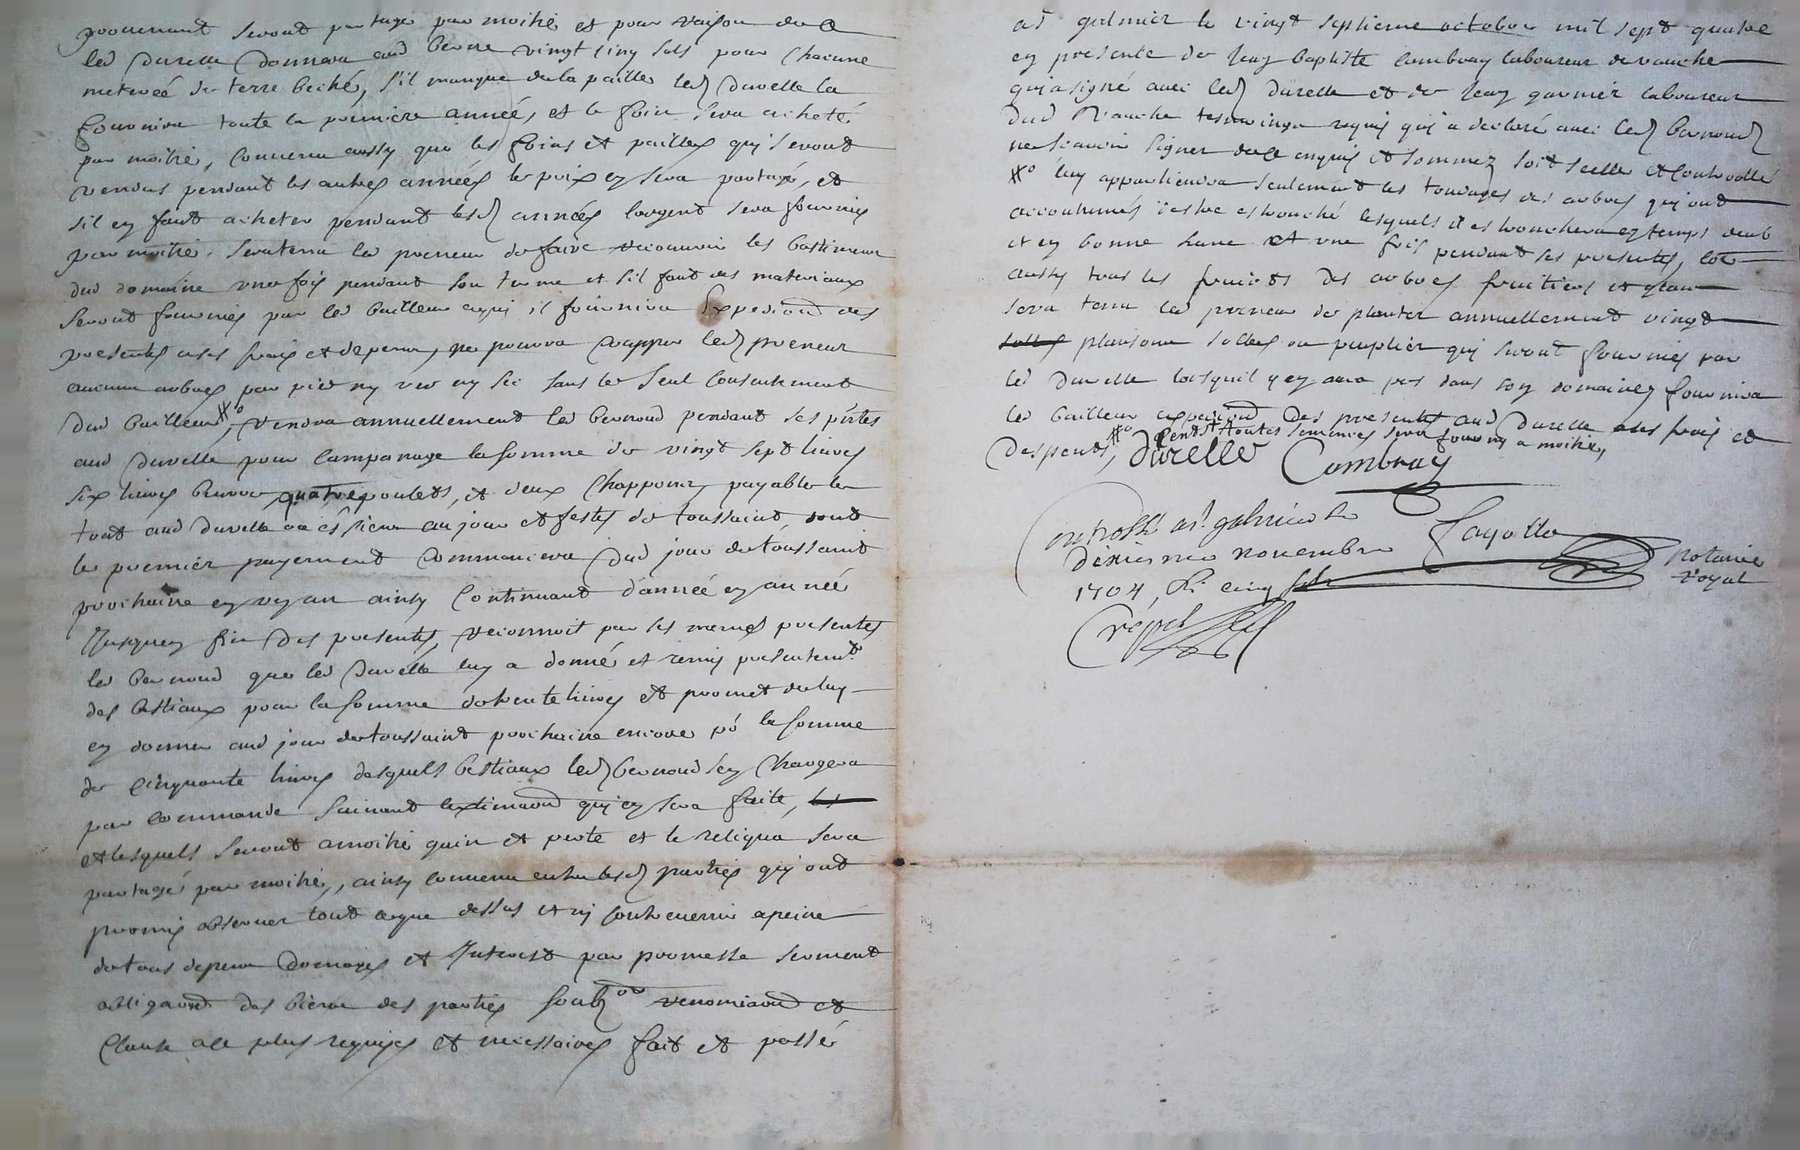 proviennent seront partagé par moitié et pour raison de
led Durelle donnera aud Bernou vingt cinq sols pour chacune
meterée de terre beché, s'il manque de la paille led Durelle la
fournira toute la premiere année, et le foin sera acheté
par moitié, convenu aussy que les foins et pailles qui seront
vendus pendant les autres années le prix en sera partagé, et
s'il en faut acheter pendant lesd années l'argent sera fournis
par moitié, sera tenu led preneur de faire recouvrir les bastiments
dud domaine une fois pendant son terme et s'il faut des materiaux
seront fournies par led bailleur auquel il fournira expedion des
presentes a ses frais et depens, ne pourra couper led preneur
aucuns arbres par pied ny vert ny sec sans le seul consentement
dud bailleur, rendra annuellement led bernoud pendant ses pntes
aud Durelle pour campanage la somme de vingt sept livres
six livres beurre quatre poulets, et deux chappons, payable le
tout aud Durelle ou es siens au jour et feste de toussaint, dont
le premier payement commencera dud jour de toussaint
prochaine en un an ainsy continuant d'année en année
Jusques fin des presentes, reconnoit par les memes presentes
led bernoud que led Durelle luy a donné et remis presentemt
des bestiaux pour la somme de trente livres et promet de luy
en donner aud jour de toussaint prochaine encore po la somme
de cinquante livres desquels bestiaux led bernoud s'en chargera
par commande suivant l'extimaon qui en sera faite, les
et lesquels seront a moitié gain et perte et le reliqua sera
partagé par moitié, ainsy convenu entre lesd parties qui ont
promis observer tout ce que dessus et n'y contrevenir a peine
de tous depens domages et Interest par promesse serment
obligaond des biens des parties soubzon renonciaond et
clause a ce plus requises et necessaires fait et passé
a st galmier le vingt septieme octobre mil sept quatre
en presence de Jean baptiste Combray laboureur de rauche
qui a signé avec led Durelle et de Jean garnier laboureur
dud Rauche tesmoings requis qui a declaré avec led bernoud
ne scavoir signer de ce enquis et sommez soit scellé et controllé
luy appartiendra seulement les tondages des arbres qui ont
accoutumés d'estre esbranché lesquels il esbranchera en temps deub
et en bonne lune et une fois pendant les presentes, bec
aussy tous les fruicts des arbres fruitiers et glan
sera tenu led preneur de planter annuellement vingt
solles plansons solles ou peuplier qui seront fournies par
led Durelle lorsquil n'y en aura pas dans son domaine, fournira
led bailleur expediond des presentes aud Durelle a ses frais et
despents, pendt toutes semences sera fournis a moitié,
Durelle Combray
controllé a st galmier le
dixiesme novembre
1704, R. cinq sols
Crepet
Fayolle
notaire
royal